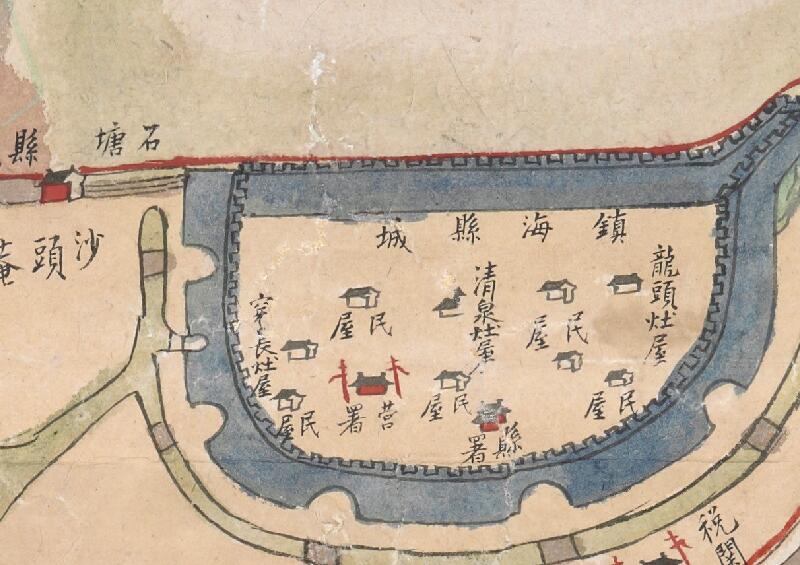 石塘
縣
沙頭菴
鎮海縣城
龍頭灶屋
清泉灶屋
穿長灶屋
民屋
民屋
民屋
民屋
民屋
營署
縣署
稅關